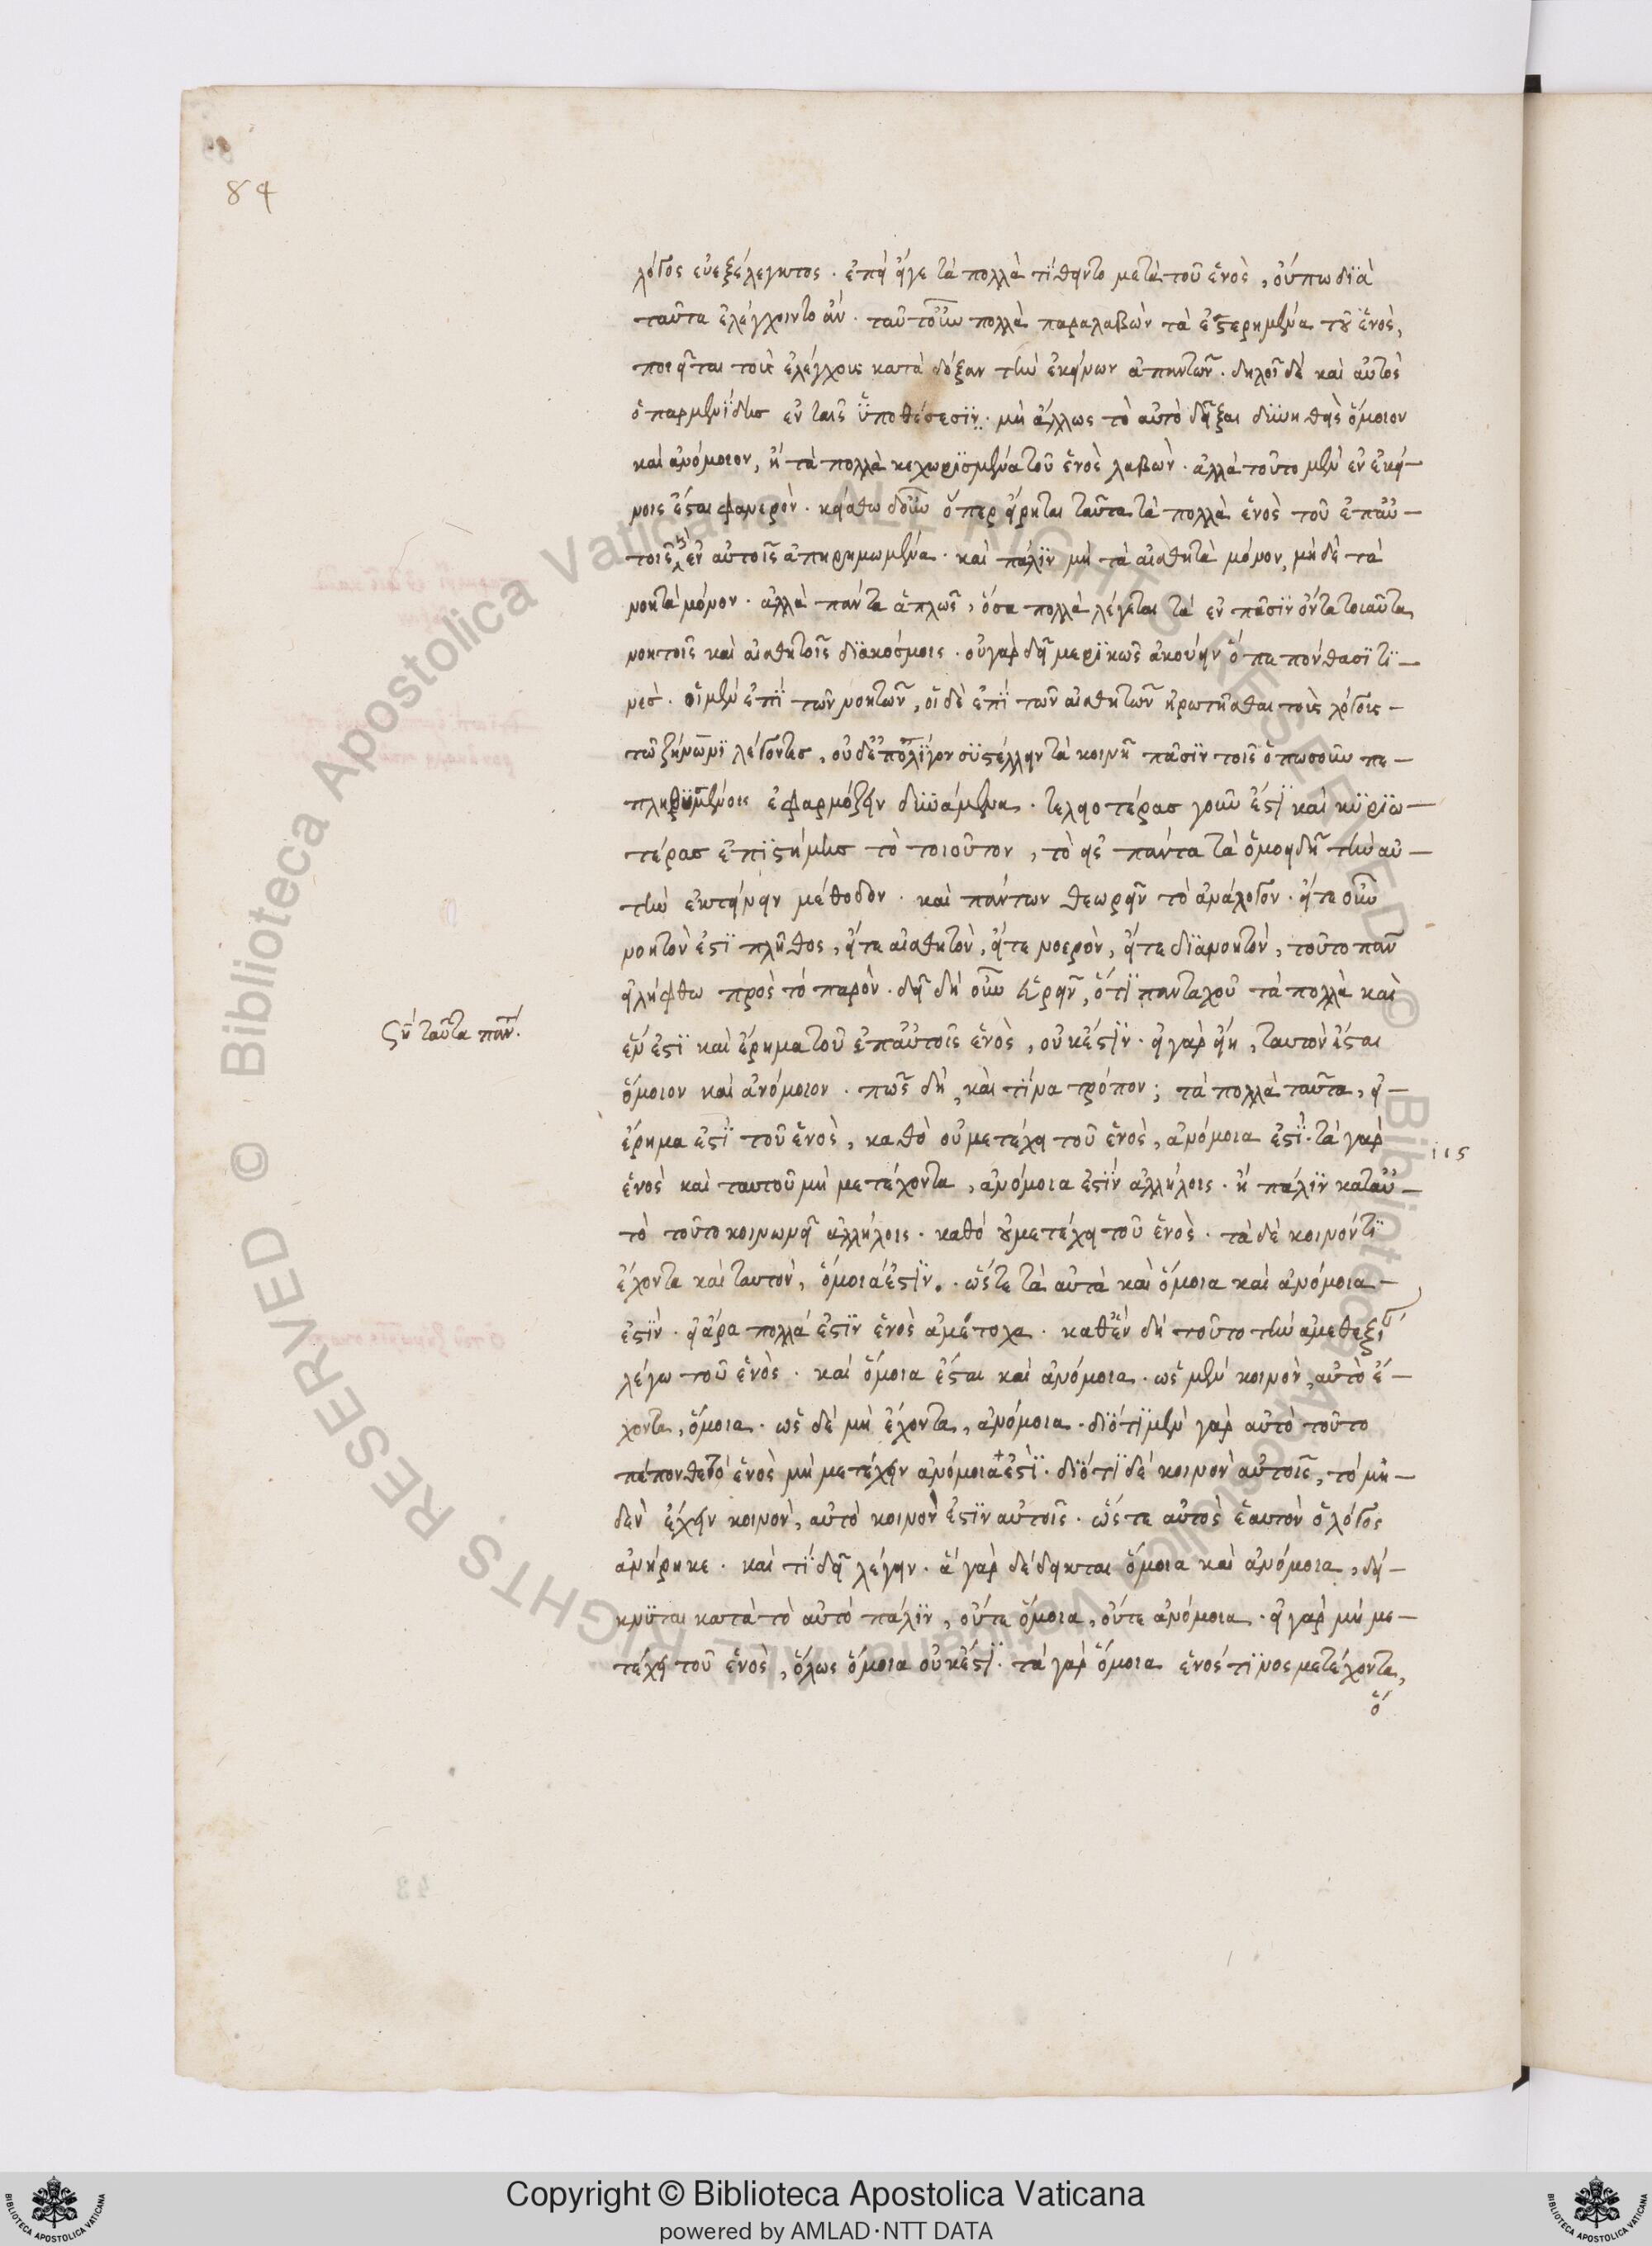 84
λόγος εὐεξέλεγκτος. ἐπεὶ εἴγε τὰ πολλὰ τίθειντο μετὰ τοῦ ἑνὸς, οὔπω διὰ
ταῦτα ἐλέγχοιντο ἄν. ταῦτ᾽ οὖν πολλὰ παραλαβὼν τὰ ἐστερημένα τοῦ ἑνὸς,
ποιεῖται τοὺς ἐλέγχους κατὰ δόξαν τὴν ἐκείνων ἀπαντῶν. δηλοῖ δὲ καὶ αὐτὸς
ὁ παρμενίδης ἐν ταῖς ὑποθέσεσιν. μὴ ἄλλως τὸ αὐτὸ δεῖξαι δυνηθεὶς ὅμοιον
καὶ ἀνόμοιον, ἢ τὰ πολλὰ κεχωρισμένα τοῦ ἑνὸς λαβών. ἀλλὰ τοῦτο μὲν ἐν ἐκεί-
νοις ἔσται φανερὸν. κείσθω δ᾽ οὖν ὅπερ εἴρηται ταῦτα τὰ πολλὰ ἑνὸς τοῦ ἐπ᾽ αὐ-
τοῖς ἐν αὐτοῖς ἀπηρημωμένα. καὶ πάλιν μὴ τὰ αἰσθητὰ μόνον, μὴ δὲ τὰ
νοητὰ μόνον. ἀλλὰ πάντα ἁπλῶς, ὅσα πολλὰ λέγεται τὰ ἐν πᾶσιν ὄντα τοιαῦτα
νοητοῖς καὶ αἰσθητοῖς διακόσμοις. οὐ γὰρ δεῖ μερικῶς ἀκούειν ὅπε πόνθασί τι-
νες. οἱ μὲν ἐπὶ τῶν νοητῶν, οἱ δὲ ἐπὶ τῶν αἰσθητῶν ἠρωτῆσθαι τοὺς λόγους
τῶ ζήνωνι λέγοντες, οὐδὲ ἐπ᾽ ὀλίγον συστέλλειν τὰ κοινῇ πᾶσιν τοῖς ὁπωσοῦν πε-
πληθυσμένοις ἐφαρμόζειν δυνάμενα. τελειοτέρας γοῦν ἐστὶ καὶ κυριω-
τέρας ἐπιστήμης τὸ τοιοῦτον, τὸ εἰς πάντα τὰ ὁμοειδῆ τὴν αὐ-
τὴν ἐκτείνειν μέθοδον. καὶ πάντων θεωρεῖν τὸ ἀνάλογον. εἴτε οὖν
νοητὸν ἐστὶ πλῆθος, εἴτε αἰσθητὸν, εἴτε νοερὸν, εἴτε διανοητὸν, τοῦτο πᾶν
εἰλήφθω πρὸς τὸ παρὸν. δεῖ δὴ οὖν εὑρεῖν, ὅτι πανταχοῦ τὰ πολλὰ καὶ
ζη ταῦτα παν.
ἕν ἐστι καὶ ἔρημα τοῦ ἐπ᾽ αὐτοῖς ἑνὸς, οὐκ ἔστιν. εἰ γὰρ εἴη, ταυτὸν ἔσται
ὅμοιον καὶ ἀνόμοιον. πῶς δὴ, καὶ τίνα τρόπον; τὰ πολλὰ ταῦτα, εἰ
ἔρημα ἐστὶ τοῦ ἑνὸς, καθὸ οὐ μετέχει τοῦ ἑνὸς, ἀνόμοια ἐστὶ. τὰ γὰρ
ἑνὸς καὶ ταυτοῦ μὴ μετέχοντα, ἀνόμοια ἐστὶν ἀλλήλοις. ἢ πάλιν κατ᾽ αὐ-
τὸ τοῦτο κοινωνεῖ ἀλλήλοις. καθὸ οὐ μετέχει τοῦ ἑνὸς. τὰ δὲ κοινόν τι
ἔχοντα καὶ ταυτὸν, ὅμοιά ἐστιν. ὥστε τὰ αὐτὰ καὶ ὅμοια καὶ ἀνόμοια
ἐστὶν. εἰ ἄρα πολλά ἐστιν ἑνὸς ἀμέτοχα. καθ᾽ ἓν δὴ τοῦτο τὴν ἀμεθεξίαν
λέγω τοῦ ἑνὸς. καὶ ὅμοια ἔσται καὶ ἀνόμοια. ὡς μὲν κοινὸν, αὐτὸ ἔ-
χοντα, ὅμοια. ὡς δὲ μὴ ἔχοντα, ἀνόμοια. διότι μὲν γὰρ αὐτὸ τοῦτο
πέπονθε τὸ ἑνὸς μὴ μετέχειν ἀνόμοια ἐστὶ. διότι δὲ κοινὸν αὐτοῖς, τὸ μη-
δὲν ἔχειν κοινὸν, αὐτὸ κοινὸν ἐστὶν αὐτοῖς. ὥστε αὐτὸς ἑαυτὸν ὁ λόγος
ἀνήρηκε. καὶ τί δεῖ λέγειν. ἃ γὰρ δέδεικται ὅμοια καὶ ἀνόμοια, δεί-
κνυται κατὰ τὸ αὐτὸ πάλιν, οὔτε ὅμοια, οὔτε ἀνόμοια. εἰ γὰρ μὴ με-
τέχει τοῦ ἑνὸς, ὅλως ὅμοια οὐκ ἔστι. τὰ γὰρ ὅμοια ἑνός τινος μετέχοντα,
ὅ
Copyright © Biblioteca Apostolica Vaticana
powered by AMLAD·NTT DATA